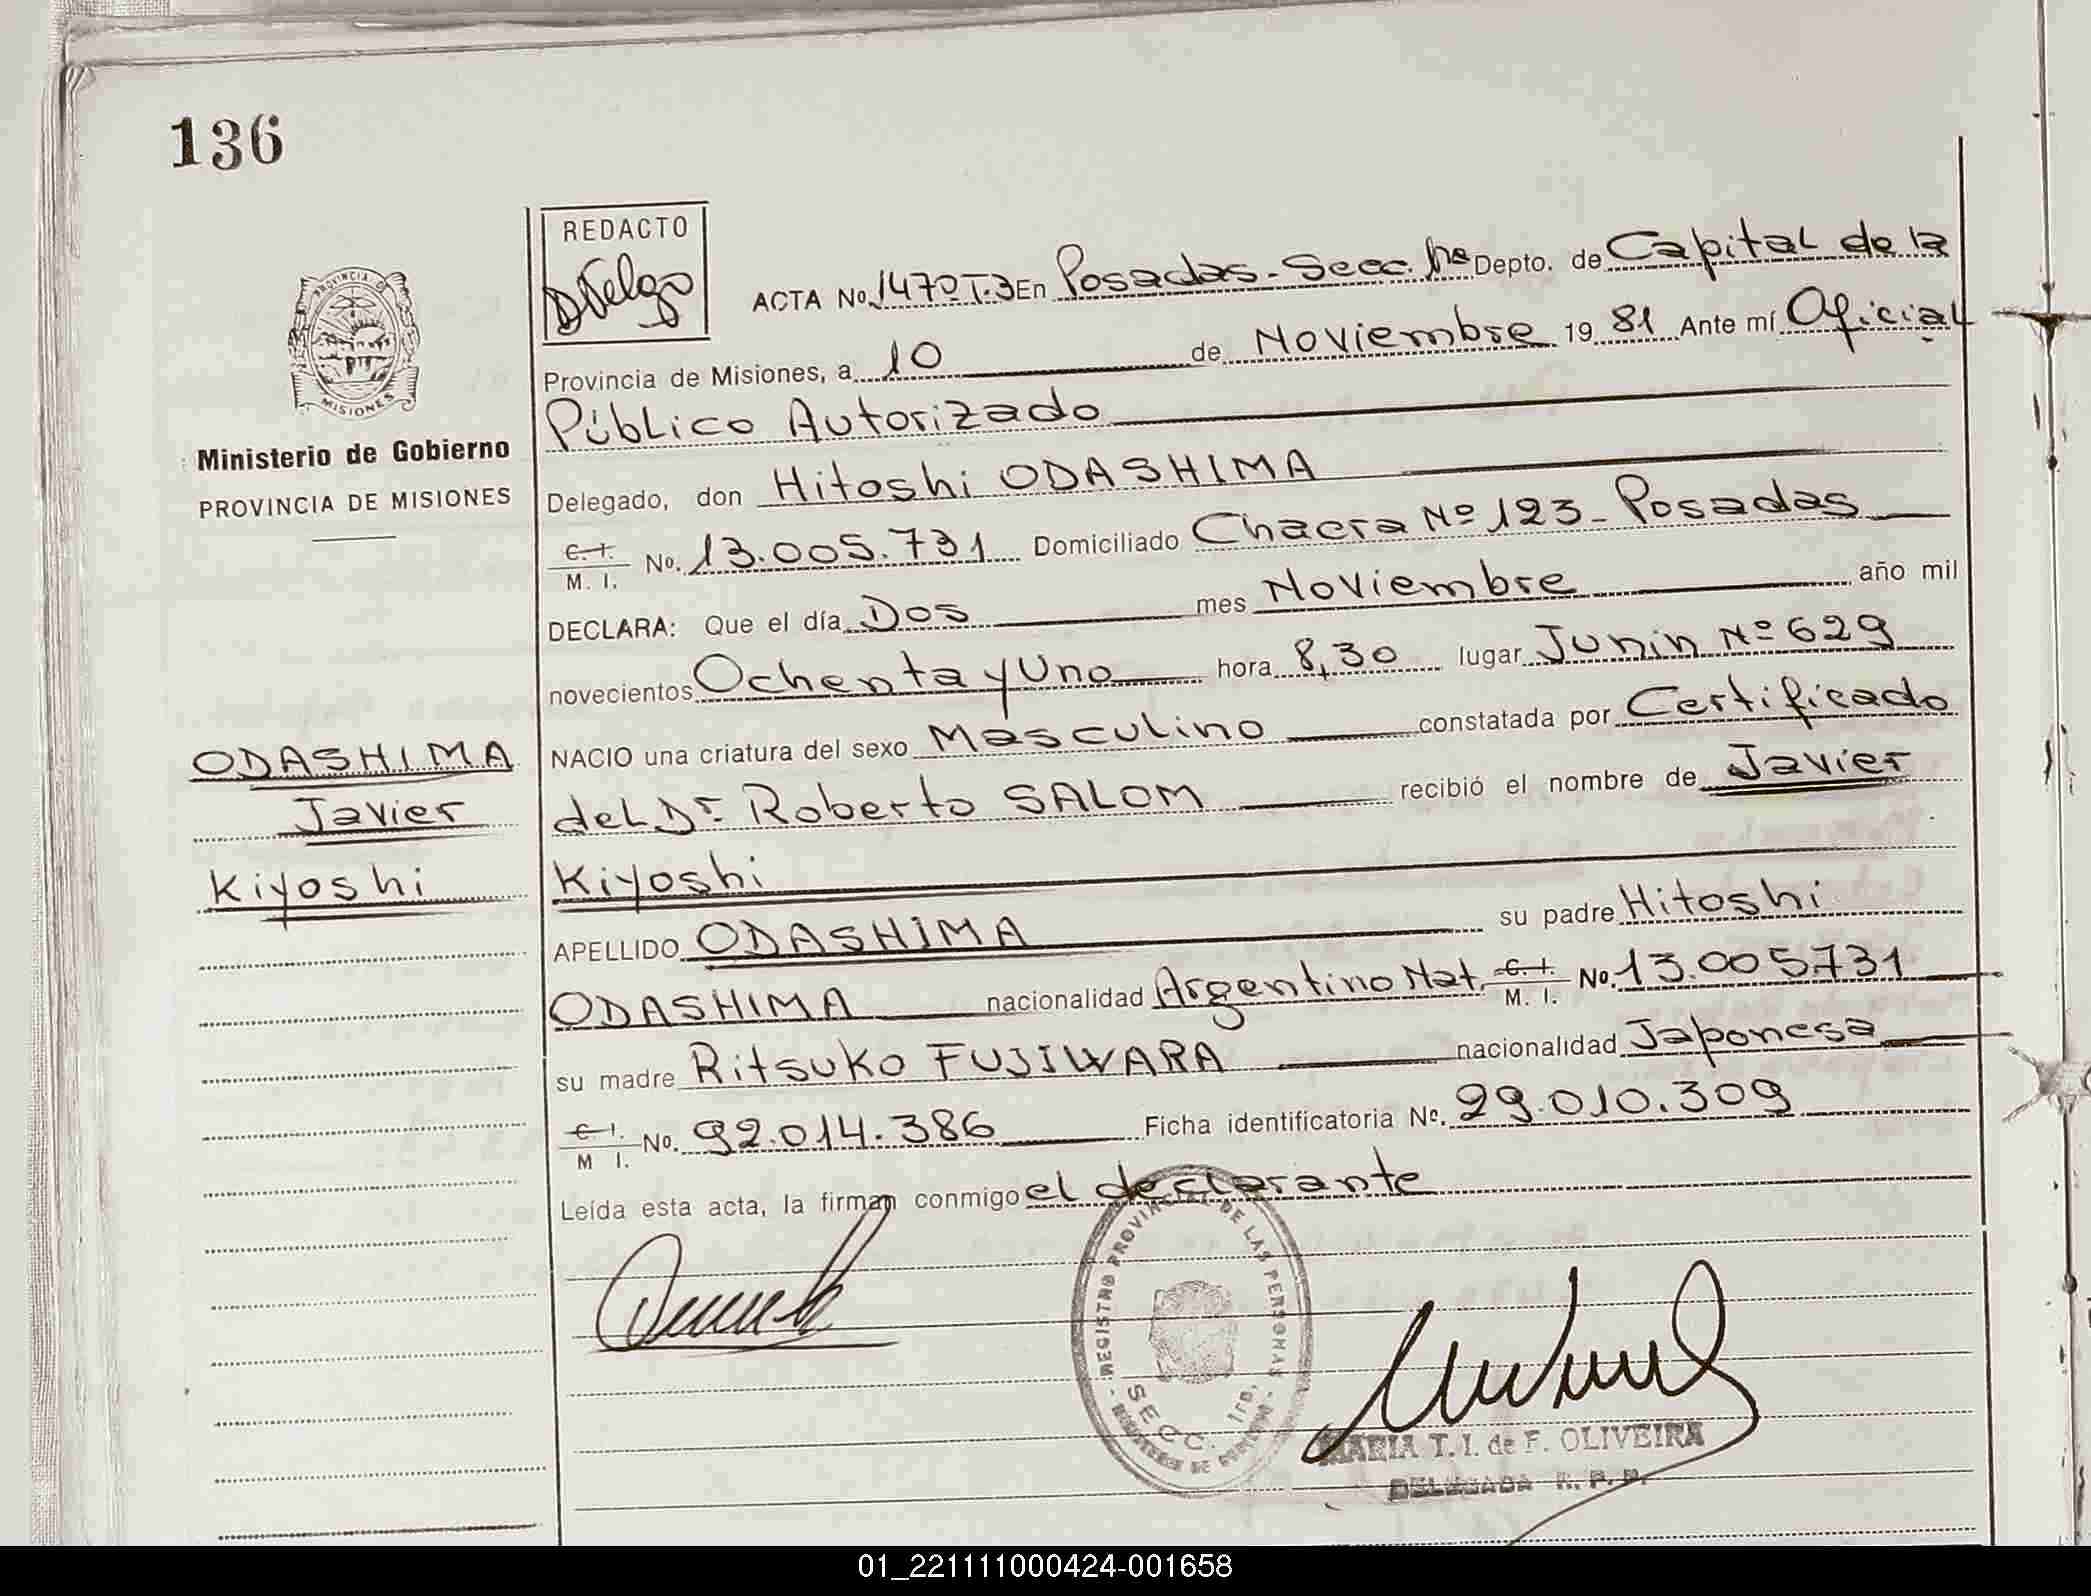 136
REDACTO
PROVINCIA DE
MISIONES
Ministerio de Gobierno
PROVINCIA DE MISIONES
ODASHIMA
Javier
Kiyoshi
ACTA No. 1470 T.3 En Posadas-Secc. 1ra Depto. de Capital de la
Provincia de Misiones, a 10 de Noviembre 19 81 Ante mí Oficial
Público Autorizado
Delegado, don Hitoshi ODASHIMA
C. I. M. I. No. 13.005.731 Domiciliado Chacra Nº 123- Posadas
DECLARA: Que el día Dos mes Noviembre año mil
novecientos Ochenta y Uno hora 8,30 lugar Junin Nº 629
NACIO una criatura del sexo Masculino constatada por Certificado
del Dr. Roberto SALOM recibió el nombre de Javier
Kiyoshi
APELLIDO ODASHIMA su padre Hitoshi
ODASHIMA nacionalidad Argentino Nat. C. I. M. I. No. 13.005.731
su madre Ritsuko FUJIWARA nacionalidad Japonesa
C. I. M I. No. 92.014.386 Ficha identificatoria No. 29.010.309
Leída esta acta, la firman conmigo el declarante
REGISTRO PROVINCIAL DE LAS PERSONAS
SECC. 1ra.
MINISTERIO DE GOBIERNO
MARIA T. I. de F. OLIVEIRA
DELEGADA R. P. P.
01_221111000424-001658